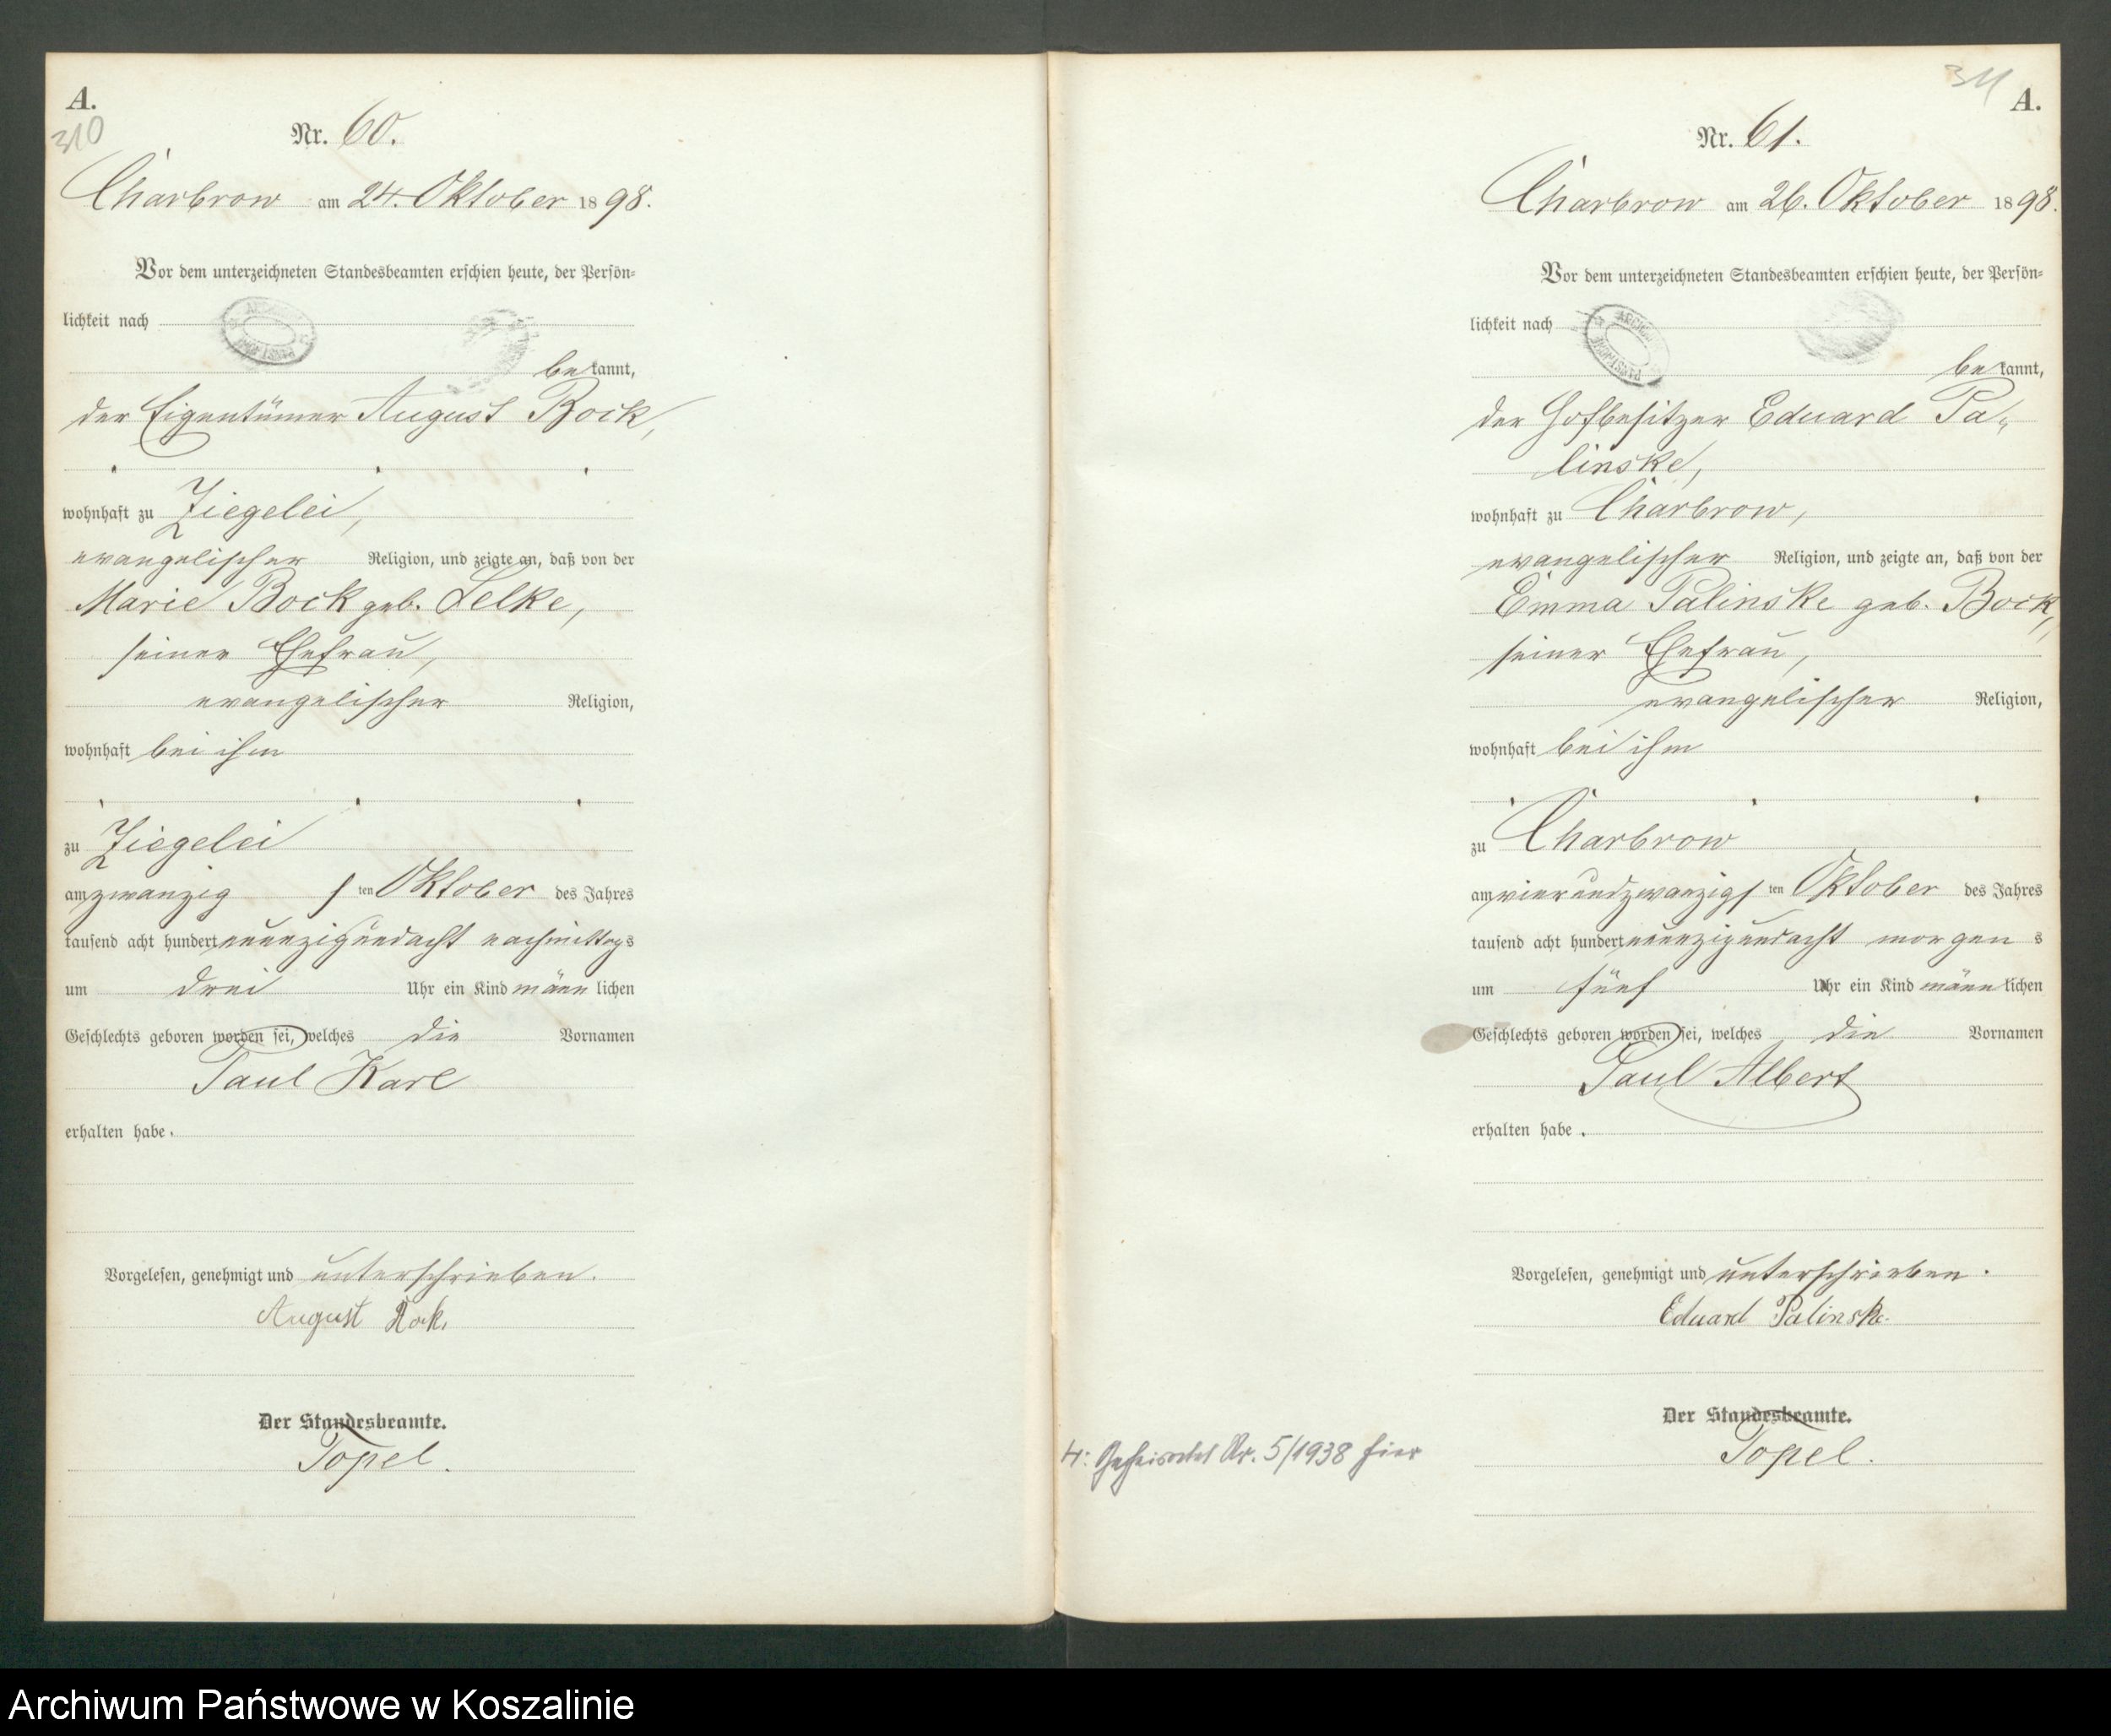 A.
310
Nr. 60.
Charbrow am 24. Oktober 1898.
Vor dem unterzeichneten Standesbeamten erschien heute, der Persön-
lichkeit nach
bekannt,
der Eigentümer August Bock,
wohnhaft zu Ziegelei,
evangelischer Religion, und zeigte an, daß von der
Marie Bock geb. Selke,
seiner Ehefrau,
evangelischer Religion,
wohnhaft bei ihm
zu Ziegelei
am zwanzigsten Oktober des Jahres
tausend acht hundert neunzigundacht nachmittags
um drei Uhr ein Kind männlichen
Geschlechts geboren worden sei, welches die Vornamen
Paul Karl
erhalten habe.
Vorgelesen, genehmigt und unterschrieben.
August Bock.
Der Standesbeamte.
Topel.
311
A.
Nr. 61.
Charbrow am 26. Oktober 1898.
Vor dem unterzeichneten Standesbeamten erschien heute, der Persön-
lichkeit nach
bekannt,
der Hofbesitzer Eduard Pa-
linske,
wohnhaft zu Charbrow,
evangelischer Religion, und zeigte an, daß von der
Emma Palinske geb. Bock,
seiner Ehefrau,
evangelischer Religion,
wohnhaft bei ihm
zu Charbrow
am vierundzwanzigsten Oktober des Jahres
tausend acht hundert neunzigundacht morgens
um fünf Uhr ein Kind männlichen
Geschlechts geboren worden sei, welches die Vornamen
Paul Albert
erhalten habe.
Vorgelesen, genehmigt und unterschrieben.
Eduard Palinske.
Der Standesbeamte.
Topel.
Nr. 5/1938 hier
Archiwum Państwowe w Koszalinie